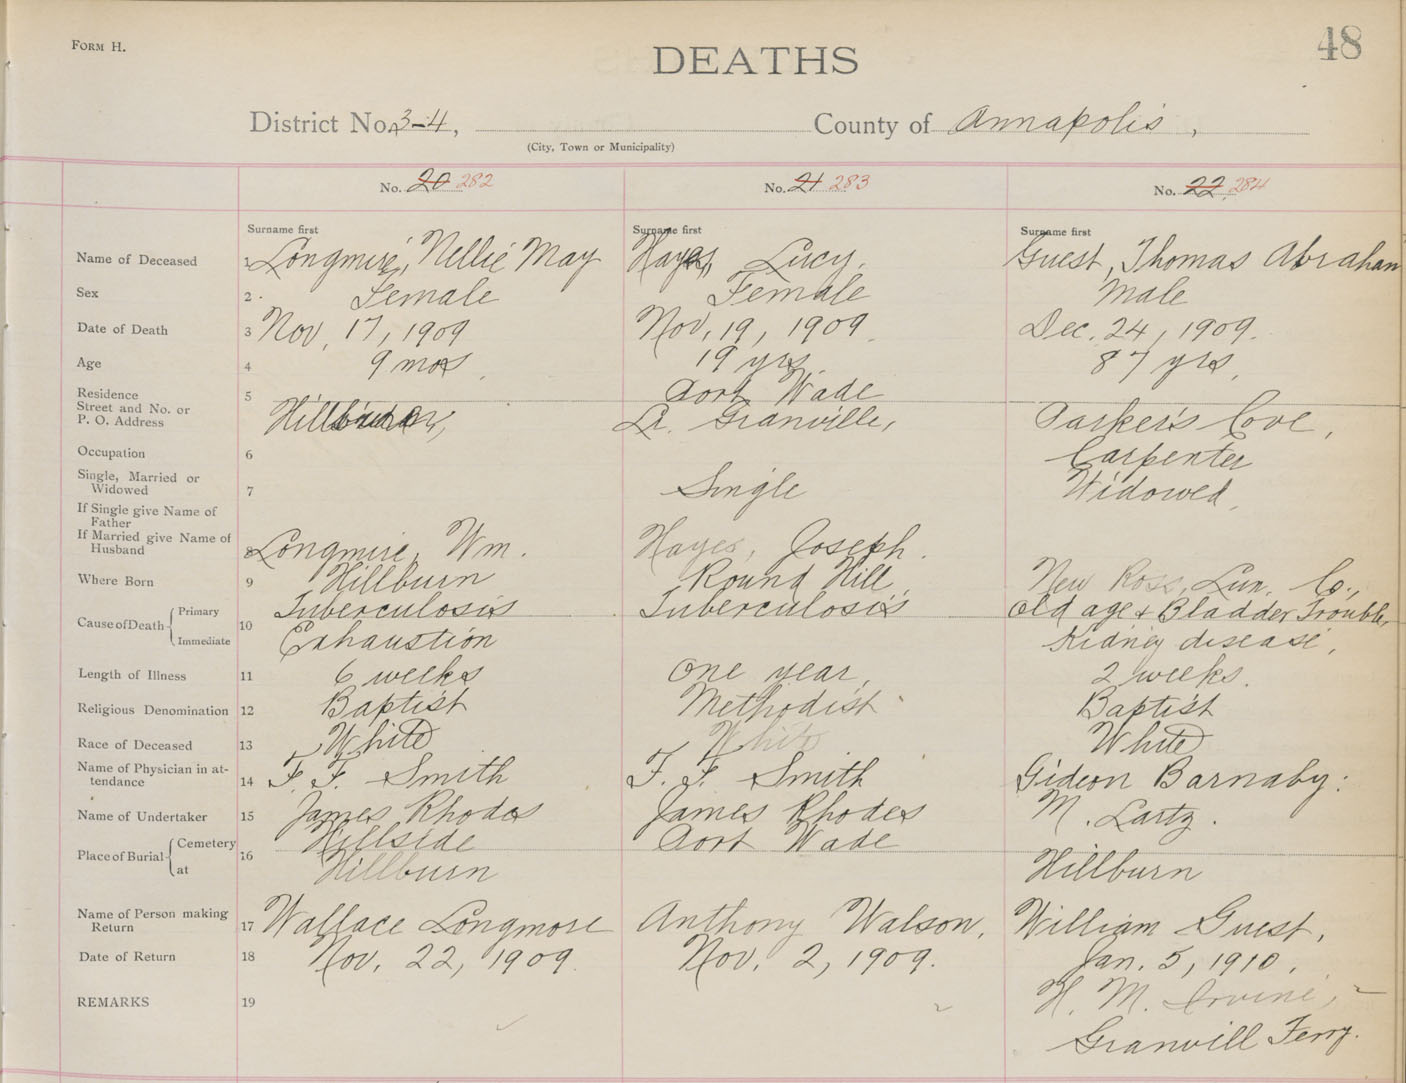 FORM H.
48
DEATHS
District No. 3-4, County of Annapolis,
(City, Town or Municipality)
No. 20 282 No. 21 283 No. 22 284
Surname first Surname first Surname first
Name of Deceased 1 Longmire, Nellie May Hayes, Lucy, Guest, Thomas Abraham
Sex 2 Female Female Male
Date of Death 3 Nov, 17, 1909 Nov, 19, 1909 Dec. 24, 1909.
Age 4 9 mos 19 yrs 87 yrs,
Residence 5 Port Wade
Street and No. or
P. O. Address Hillburn, Granville, Parker's Cove,
Occupation 6 Carpenter
Single, Married or
Widowed 7 Single Widowed,
If Single give Name of
Father
If Married give Name of
Husband 8 Longmire, Wm. Hayes, Joseph.
Where Born 9 Hillburn Round Hill New Ross, Lun. Co.,
Cause of Death Primary 10 Tuberculosis Tuberculosis Old age & Bladder Trouble,
Immediate Exhaustion Kidney disease,
Length of Illness 11 6 weeks One year, 2 weeks.
Religious Denomination 12 Baptist Methodist Baptist
Race of Deceased 13 White White White
Name of Physician in at-
tendance 14 F. F. Smith F. F. Smith Gideon Barnaby.
Name of Undertaker 15 James Rhodes James Rhodes M.
Place of Burial Cemetery 16 Hillside Port Wade
at Hillburn Hillburn
Name of Person making
Return 17 Wallace Longmore Anthony Walson, William Guest,
Date of Return 18 Nov. 22, 1909 Nov. 2, 1909. Jan. 5, 1910.
REMARKS 19 H. M. Irvine,
Granvill Ferry.